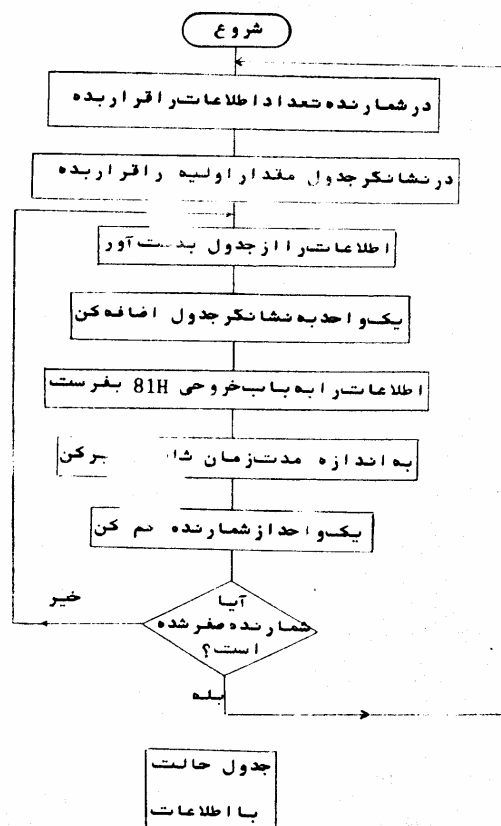 شروع
در شمارنده تعداد اطلاعات را قرار بده
در نشانگر جدول مقدار اولیه را قرار بده
اطلاعات را از جدول بدست آور
یک واحد به نشانگر جدول اضافه کن
اطلاعات را به باب خروجی 81H بفرست
به اندازه مدت زمان
یک واحد از شمارنده کم کن
آیا
شمارنده صفر شده
است؟
خیر
بله
جدول حالت
با اطلاعات